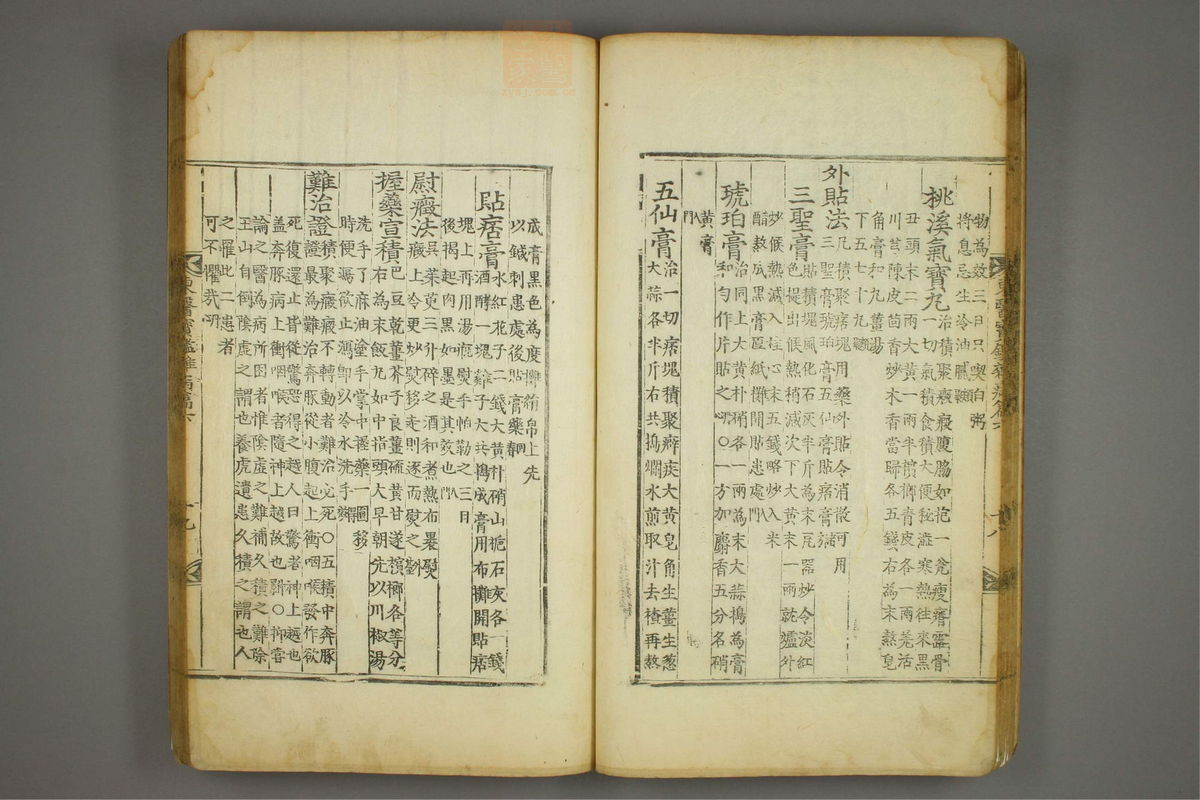 物為效三日只喫白粥
將息忌生冷油膩
桃溪氣寶丸
治積聚癥瘕腹脇如抱一瓮瘦瘠露骨
一切氣積食積大便秘澁寒熱往來黑
丑頭末二兩大黃一兩半檳榔靑皮各一兩羌活
川芎陳皮茴香炒木香當歸各五錢右為末熬皂
角膏和丸薑湯
下五七十丸
外貼法
凡積聚痞塊用藥外貼令消散可用
三聖膏琥珀膏五仙膏貼痞膏
三聖膏
貼積塊風化石灰半斤為末瓦器炒令淡紅
色提出候熱稍減次下大黃末一兩就爐外
炒候熱減入桂心末五錢略炒入米
醋熬成黑膏厚紙攤開貼患處
琥珀膏
治同上大黃朴硝各一兩為末大蒜搗為膏
和勻作片貼之○一方加麝香五分名硝
黃膏
五仙膏
治一切痞塊積聚癖疾大黃皂角生薑生葱
大蒜各半斤右共搗爛水煎取汁去楂再熬
成膏黑色為度攤絹帛上先
以鍼刺患處後貼膏藥
貼痞膏
水紅花子二錢大黃朴硝山梔石灰各一錢
酒酵一塊雞子大共搗成膏用布攤開貼痞
塊上再用湯甁熨手帕勒之三日
後揭起肉黑如墨是其效也
熨癥法
吳茱萸三升碎之酒和煮熱布裹熨
癥上冷更炒移走則逐而熨之
握藥宣積
巴豆乾薑芥子良薑硫黃甘遂檳榔各等分
右為末飯丸如中指頭大早朝先以川椒湯
洗手了麻油塗手掌中握藥一圓移
時便瀉欲止瀉卽以冷水洗手
難治證
積聚癥瘕不轉動者難治必死○五積中奔豚
證最為難治奔豚從小腹起上衝咽喉發作欲
死復還止皆從驚恐得之越人曰驚者神上越也
盖奔豚病上衝咽喉者隨神上越故也○抑嘗
論之醫為病所困者惟陰虛之難補久積之難除
玉山自倒陰虛之謂也養虎遺患久積之謂也人
之罹此二患者
可不懼哉
東醫寶鑑雜病篇六
十八
東醫寶鑑雜病篇六
十九